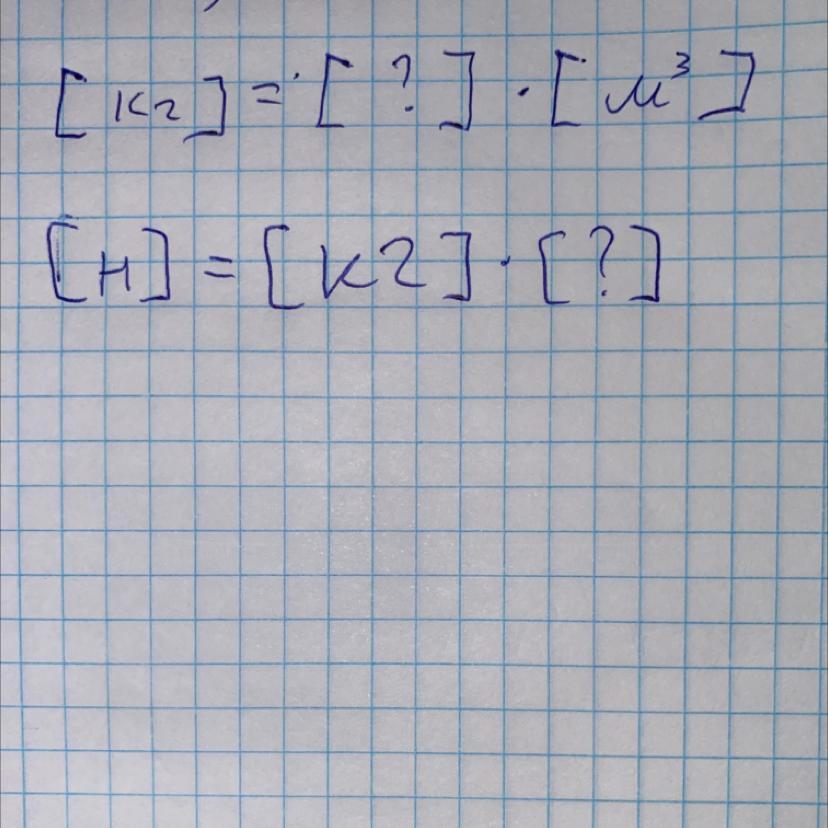 [кг] = [?] · [м³]
[н] = [кг] · [?]